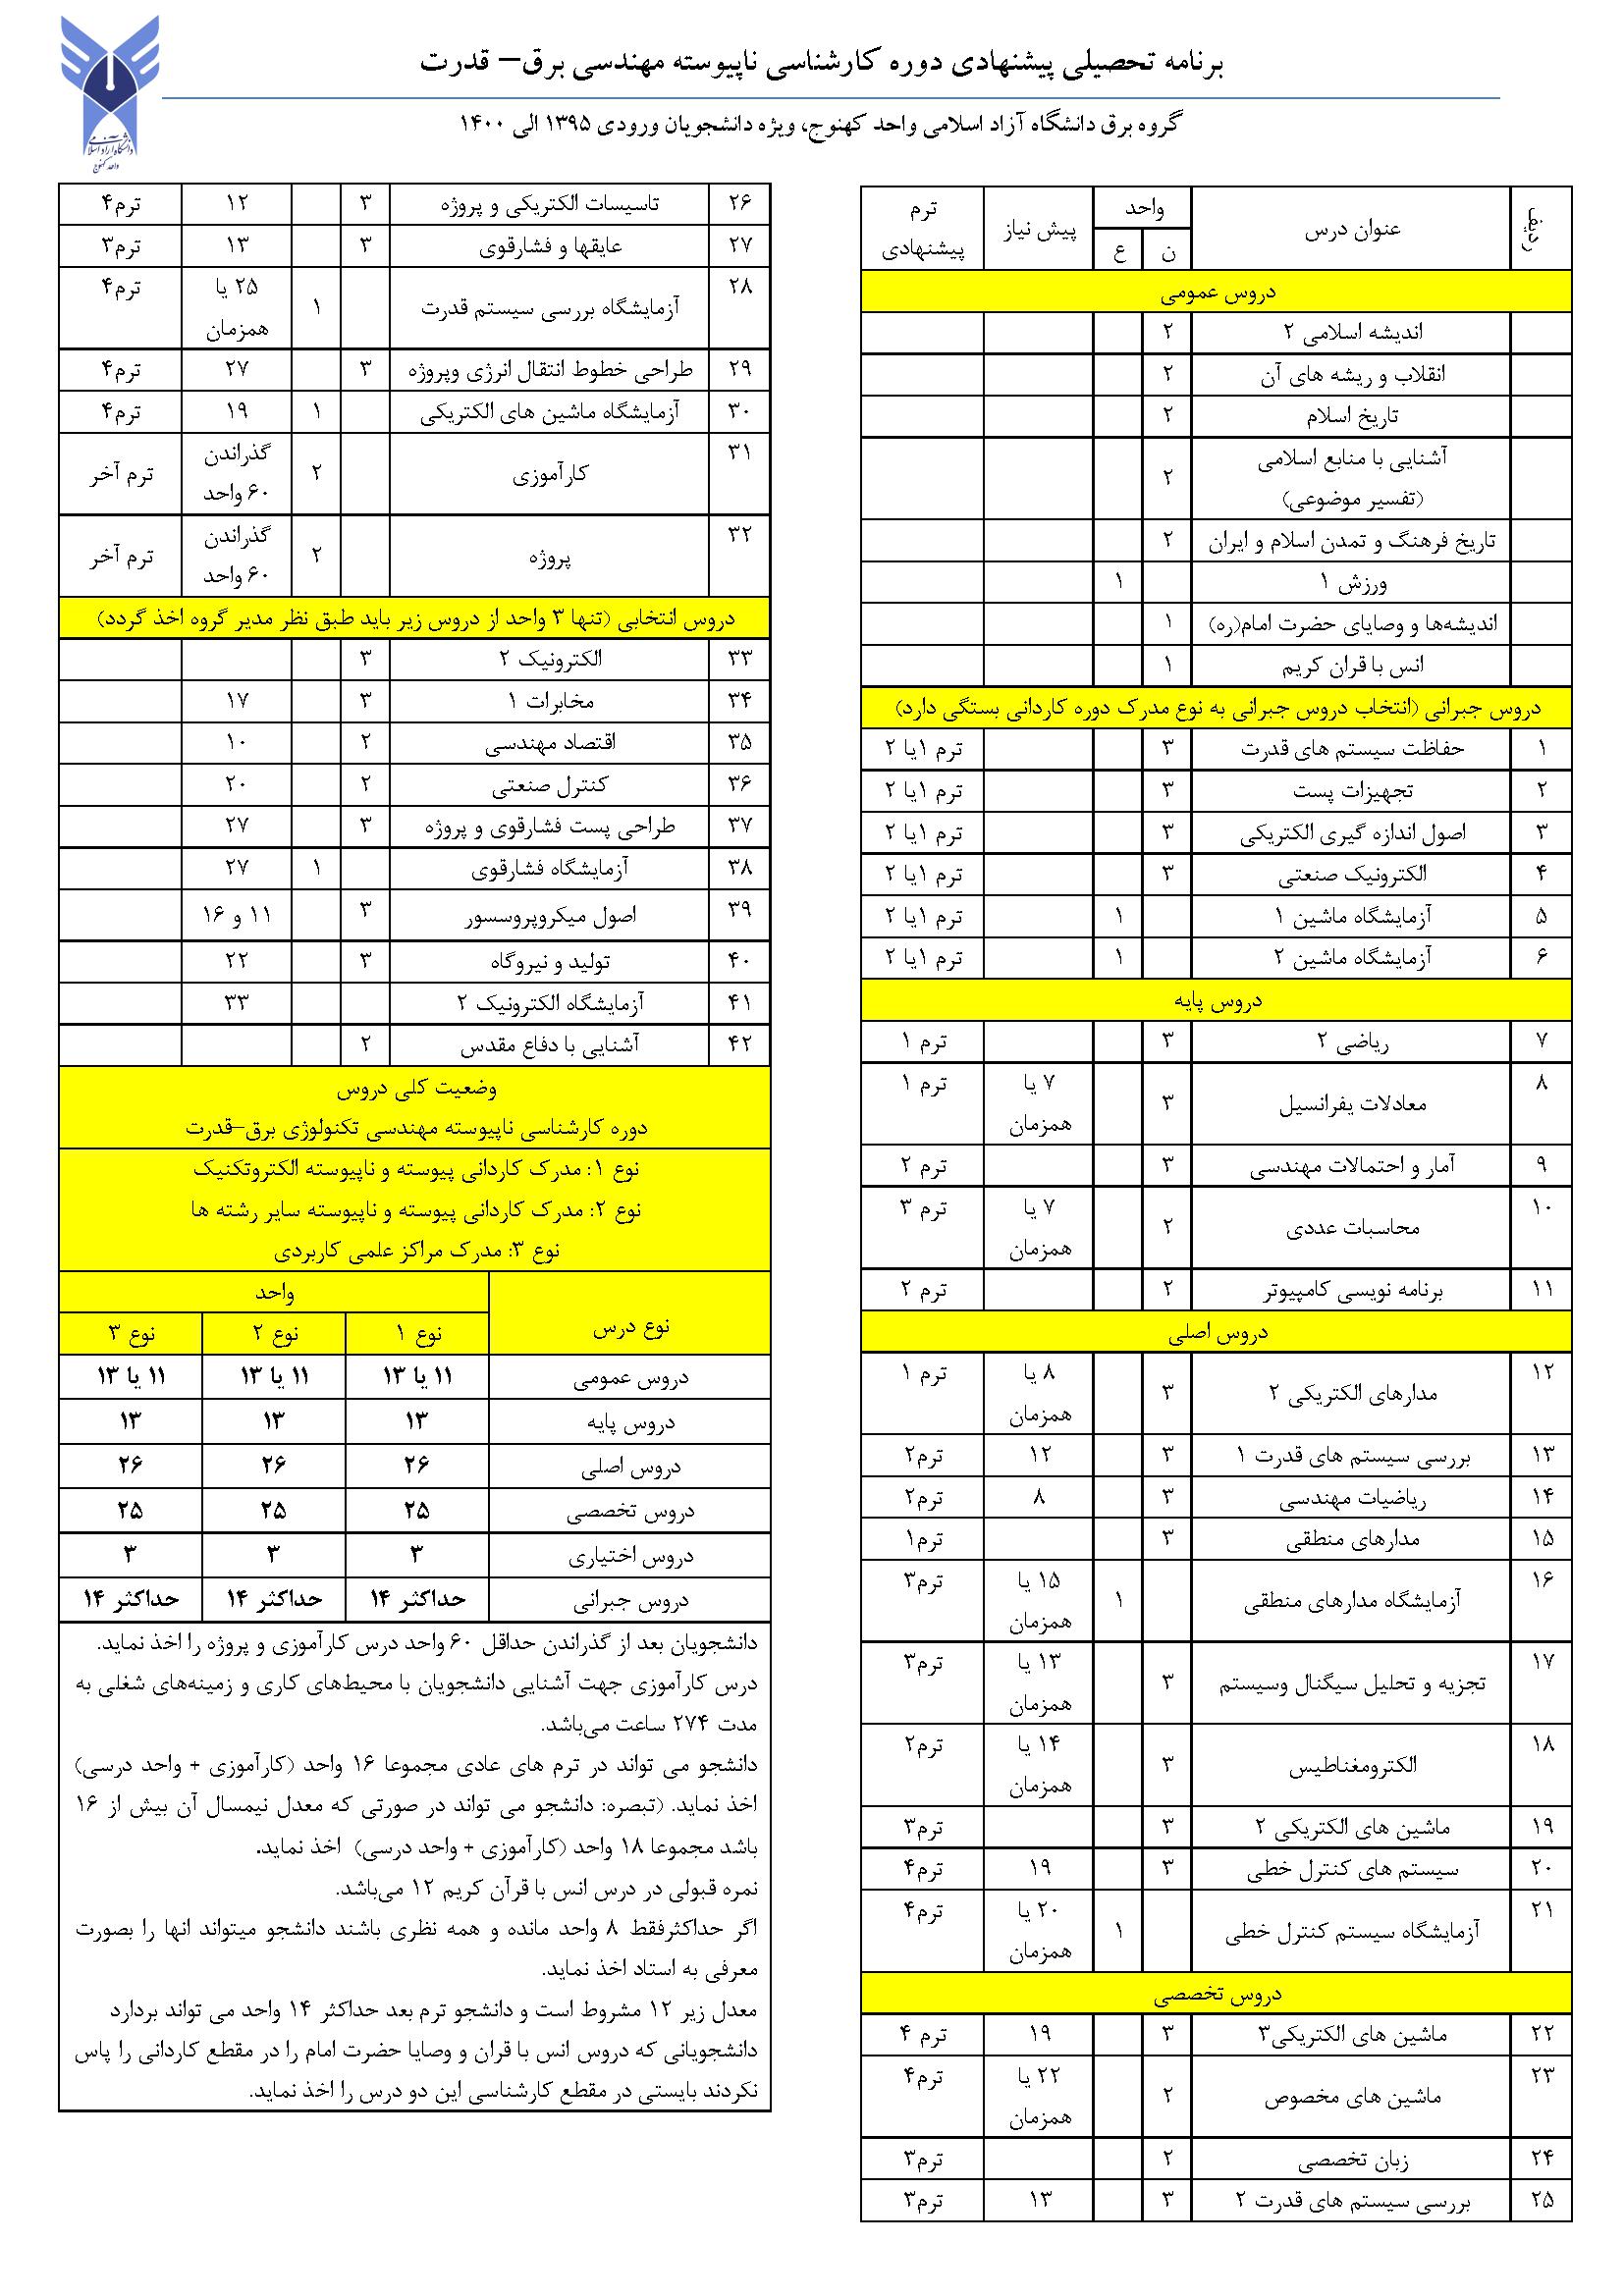 برنامه تحصیلی پیشنهادی دوره کارشناسی ناپیوسته مهندسی برق– قدرت
گروه برق دانشگاه آزاد اسلامی واحد کهنوج، ویژه دانشجویان ورودی ۱۳۹۵ الی ۱۴۰۰
دانشگاه آزاد اسلامی
واحد کهنوج
ردیف عنوان درس واحد پیش نیاز ترم پیشنهادی
ن ع
دروس عمومی
اندیشه اسلامی ۲ ۲
انقلاب و ریشه های آن ۲
تاریخ اسلام ۲
آشنایی با منابع اسلامی
(تفسیر موضوعی) ۲
تاریخ فرهنگ و تمدن اسلام و ایران ۲
ورزش ۱ ۱
اندیشه‌ها و وصایای حضرت امام(ره) ۱
انس با قران کریم ۱
دروس جبرانی (انتخاب دروس جبرانی به نوع مدرک دوره کاردانی بستگی دارد)
۱ حفاظت سیستم های قدرت ۳ ترم ۱یا ۲
۲ تجهیزات پست ۳ ترم ۱یا ۲
۳ اصول اندازه گیری الکتریکی ۳ ترم ۱یا ۲
۴ الکترونیک صنعتی ۳ ترم ۱یا ۲
۵ آزمایشگاه ماشین ۱ ۱ ترم ۱یا ۲
۶ آزمایشگاه ماشین ۲ ۱ ترم ۱یا ۲
دروس پایه
۷ ریاضی ۲ ۳ ترم ۱
۸ معادلات یفرانسیل ۳ ۷ یا همزمان ترم ۱
۹ آمار و احتمالات مهندسی ۳ ترم ۲
۱۰ محاسبات عددی ۲ ۷ یا همزمان ترم ۳
۱۱ برنامه نویسی کامپیوتر ۲ ترم ۲
دروس اصلی
۱۲ مدارهای الکتریکی ۲ ۳ ۸ یا همزمان ترم ۱
۱۳ بررسی سیستم های قدرت ۱ ۳ ۱۲ ترم۲
۱۴ ریاضیات مهندسی ۳ ۸ ترم۲
۱۵ مدارهای منطقی ۳ ترم۱
۱۶ آزمایشگاه مدارهای منطقی ۱ ۱۵ یا همزمان ترم۳
۱۷ تجزیه و تحلیل سیگنال وسیستم ۳ ۱۳ یا همزمان ترم۳
۱۸ الکترومغناطیس ۳ ۱۴ یا همزمان ترم۲
۱۹ ماشین های الکتریکی ۲ ۳ ترم۳
۲۰ سیستم های کنترل خطی ۳ ۱۹ ترم۴
۲۱ آزمایشگاه سیستم کنترل خطی ۱ ۲۰ یا همزمان ترم۴
دروس تخصصی
۲۲ ماشین های الکتریکی۳ ۳ ۱۹ ترم ۴
۲۳ ماشین های مخصوص ۲ ۲۲ یا همزمان ترم۴
۲۴ زبان تخصصی ۲ ترم۳
۲۵ بررسی سیستم های قدرت ۲ ۳ ۱۳ ترم۳
۲۶ تاسیسات الکتریکی و پروژه ۳ ۱۲ ترم۴
۲۷ عایقها و فشارقوی ۳ ۱۳ ترم۳
۲۸ آزمایشگاه بررسی سیستم قدرت ۱ ۲۵ یا همزمان ترم۴
۲۹ طراحی خطوط انتقال انرژی وپروژه ۳ ۲۷ ترم۴
۳۰ آزمایشگاه ماشین های الکتریکی ۱ ۱۹ ترم۴
۳۱ کارآموزی ۲ گذراندن ۶۰ واحد ترم آخر
۳۲ پروژه ۲ گذراندن ۶۰ واحد ترم آخر
دروس انتخابی (تنها ۳ واحد از دروس زیر باید طبق نظر مدیر گروه اخذ گردد)
۳۳ الکترونیک ۲ ۳
۳۴ مخابرات ۱ ۳ ۱۷
۳۵ اقتصاد مهندسی ۲ ۱۰
۳۶ کنترل صنعتی ۲ ۲۰
۳۷ طراحی پست فشارقوی و پروژه ۳ ۲۷
۳۸ آزمایشگاه فشارقوی ۱ ۲۷
۳۹ اصول میکروپروسسور ۳ ۱۱ و ۱۶
۴۰ تولید و نیروگاه ۳ ۲۲
۴۱ آزمایشگاه الکترونیک ۲ ۳۳
۴۲ آشنایی با دفاع مقدس ۲
وضعیت کلی دروس
دوره کارشناسی ناپیوسته مهندسی تکنولوژی برق–قدرت
نوع ۱: مدرک کاردانی پیوسته و ناپیوسته الکتروتکنیک
نوع ۲: مدرک کاردانی پیوسته و ناپیوسته سایر رشته ها
نوع ۳: مدرک مراکز علمی کاربردی
نوع درس واحد
نوع ۱ نوع ۲ نوع ۳
دروس عمومی ۱۱ یا ۱۳ ۱۱ یا ۱۳ ۱۱ یا ۱۳
دروس پایه ۱۳ ۱۳ ۱۳
دروس اصلی ۲۶ ۲۶ ۲۶
دروس تخصصی ۲۵ ۲۵ ۲۵
دروس اختیاری ۳ ۳ ۳
دروس جبرانی حداکثر ۱۴ حداکثر ۱۴ حداکثر ۱۴
دانشجویان بعد از گذراندن حداقل ۶۰ واحد درس کارآموزی و پروژه را اخذ نماید.
درس کارآموزی جهت آشنایی دانشجویان با محیط‌های کاری و زمینه‌های شغلی به
مدت ۲۷۴ ساعت می‌باشد.
دانشجو می تواند در ترم های عادی مجموعا ۱۶ واحد (کارآموزی + واحد درسی)
اخذ نماید. (تبصره: دانشجو می تواند در صورتی که معدل نیمسال آن بیش از ۱۶
باشد مجموعا ۱۸ واحد (کارآموزی + واحد درسی) اخذ نماید.
نمره قبولی در درس انس با قرآن کریم ۱۲ می‌باشد.
اگر حداکثرفقط ۸ واحد مانده و همه نظری باشند دانشجو میتواند انها را بصورت
معرفی به استاد اخذ نماید.
معدل زیر ۱۲ مشروط است و دانشجو ترم بعد حداکثر ۱۴ واحد می تواند بردارد
دانشجویانی که دروس انس با قران و وصایا حضرت امام را در مقطع کاردانی را پاس
نکردند بایستی در مقطع کارشناسی این دو درس را اخذ نماید.